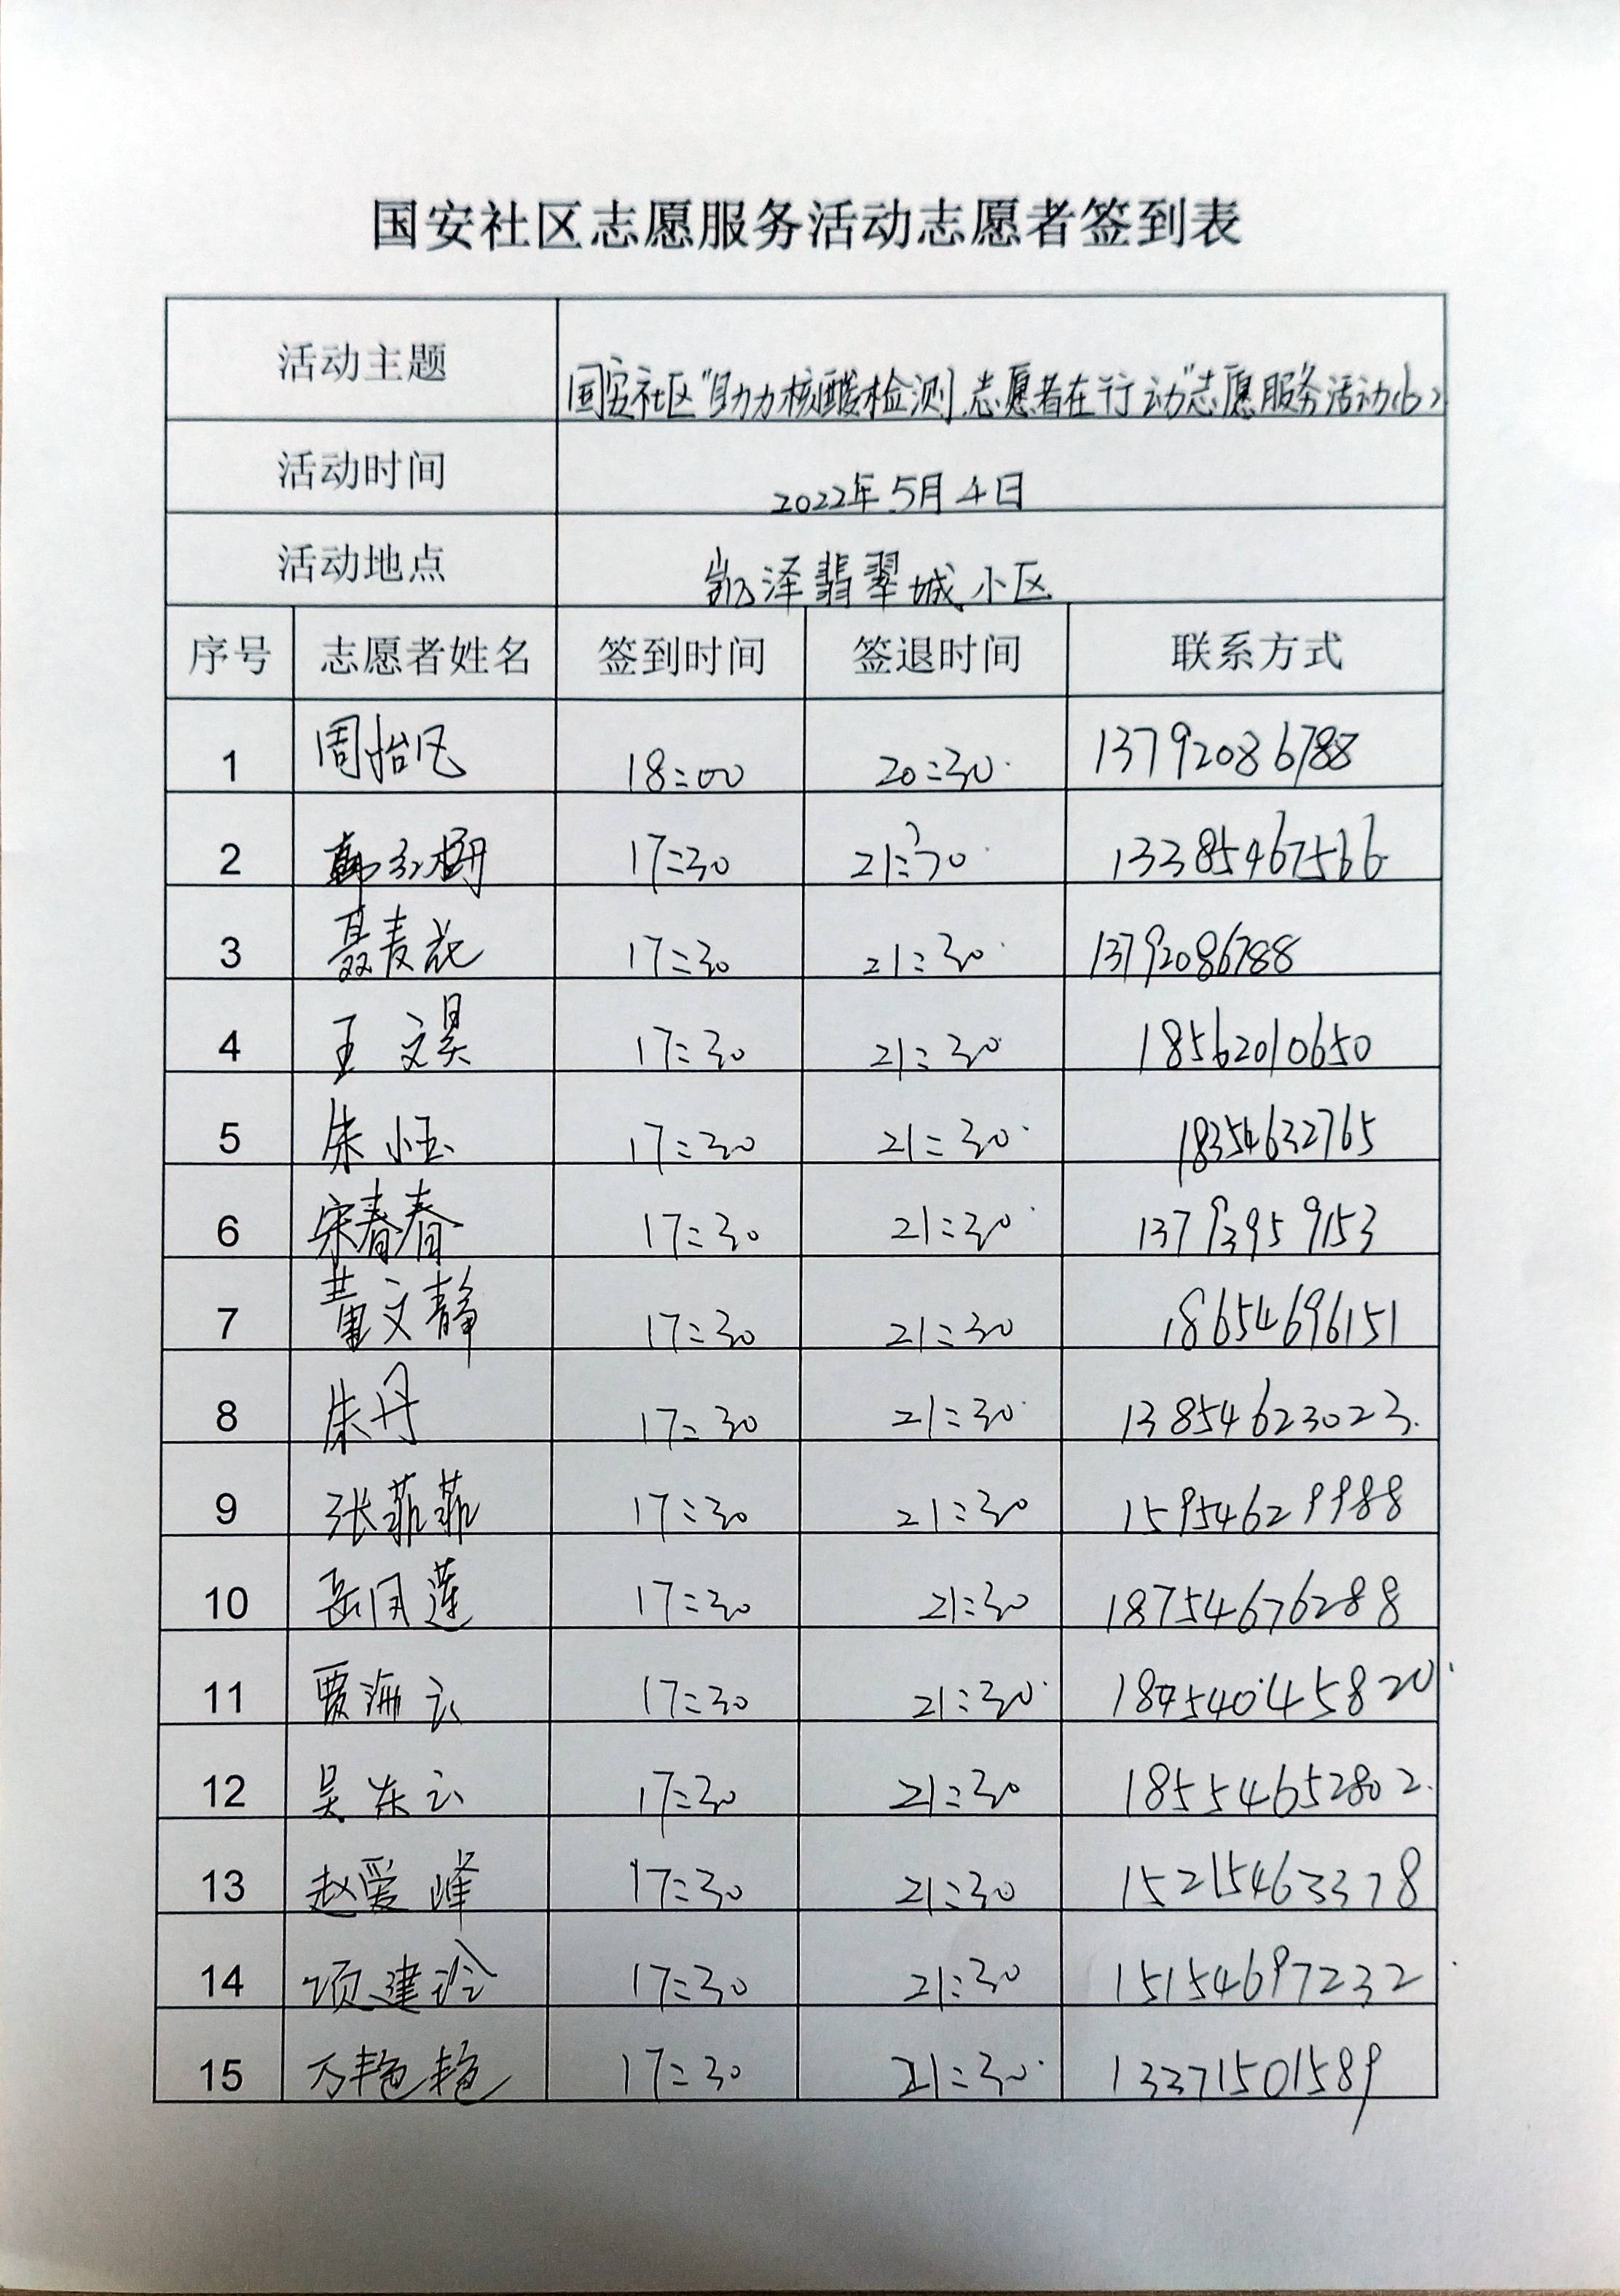 国安社区志愿服务活动志愿者签到表
活动主题 国安社区“助力核酸检测,志愿者在行动”志愿服务活动(6)
活动时间 2022年5月4日
活动地点 凯泽翡翠城小区
序号 志愿者姓名 签到时间 签退时间 联系方式
1 周怡凡 18:00 20:30 13792086788
2 17:30 21:30 13385467566
3 聂麦花 17:30 21:30 13792086788
4 王文昊 17:30 21:30 18562010650
5 朱小玉 17:30 21:30 18354632765
6 宋春春 17:30 21:30 13793959153
7 董文静 17:30 21:30 18654696151
8 朱丹 17:30 21:30 13854623023
9 张菲菲 17:30 21:30 15954629988
10 岳同莲 17:30 21:30 18754676288
11 贾海云 17:30 21:30
12 吴东云 17:30 21:30 18554652802
13 赵爱峰 17:30 21:30 15215463378
14 项建玲 17:30 21:30 15154697232
15 万艳艳 17:30 21:30 13371501589